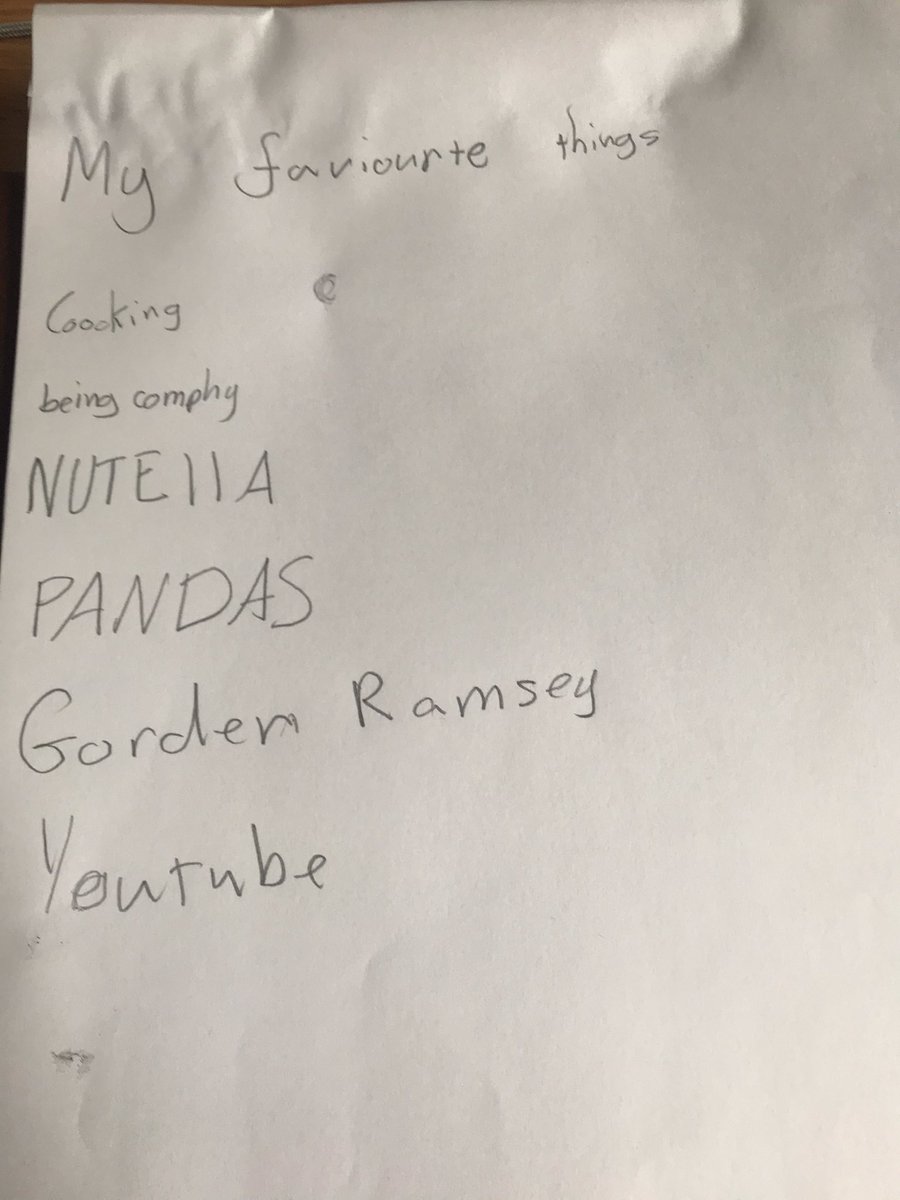 My faviourte things
Coooking
being comphy
NUTEllA
PANDAS
Gorden Ramsey
Youtube